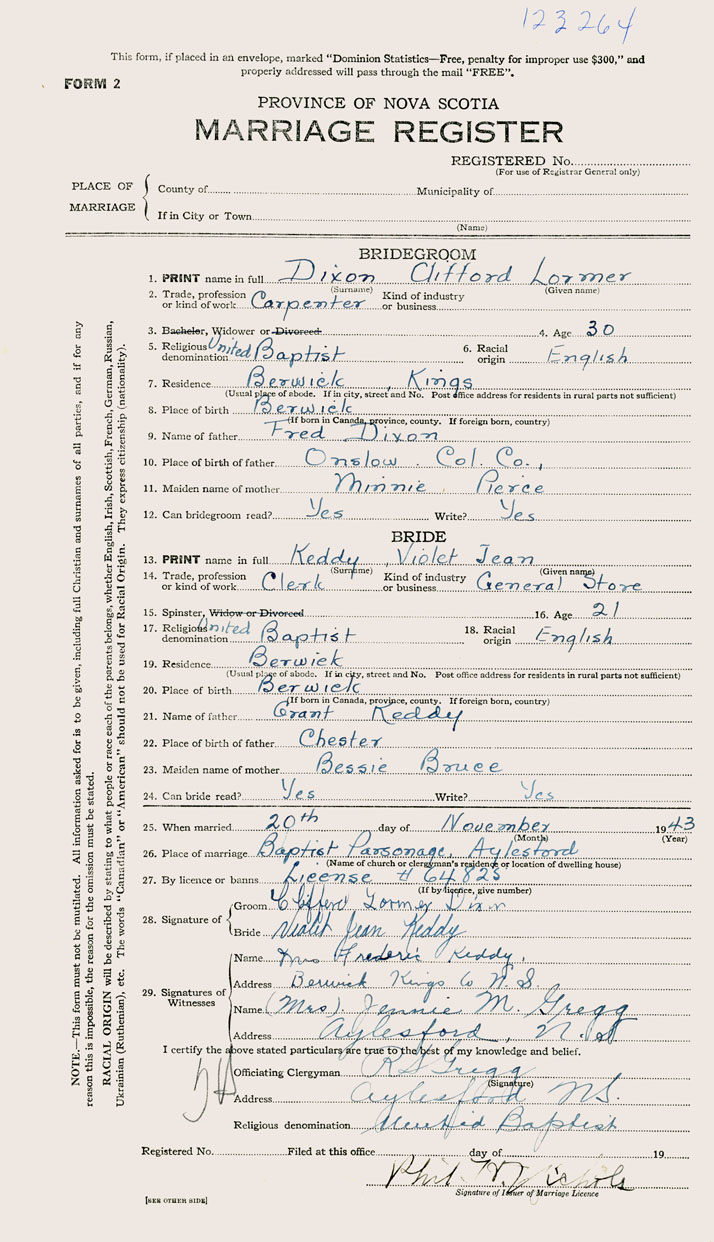 123264
This form, if placed in an envelope, marked "Dominion Statistics—Free, penalty for improper use $300," and
properly addressed will pass through the mail "FREE".
FORM 2
PROVINCE OF NOVA SCOTIA
MARRIAGE REGISTER
REGISTERED No.
(For use of Registrar General only)
PLACE OF MARRIAGE
County of Municipality of
If in City or Town
(Name)
BRIDEGROOM
1. PRINT name in full Dixon Clifford Lormer
(Surname) (Given name)
2. Trade, profession or kind of work Carpenter Kind of industry or business
3. Bachelor, Widower or Divorced 4. Age 30
5. Religious denomination United Baptist 6. Racial origin English
7. Residence Berwick, Kings
(Usual place of abode. If in city, street and No. Post office address for residents in rural parts not sufficient)
8. Place of birth Berwick
(If born in Canada, province, county. If foreign born, country)
9. Name of father Fred Dixon
10. Place of birth of father Onslow. Col. Co.,
11. Maiden name of mother Minnie Pierce
12. Can bridegroom read? Yes Write? Yes
BRIDE
13. PRINT name in full Keddy, Violet Jean
(Surname) (Given name)
14. Trade, profession or kind of work Clerk Kind of industry or business General Store
15. Spinster, Widow or Divorced 16. Age 21
17. Religious denomination United Baptist 18. Racial origin English
19. Residence Berwick
(Usual place of abode. If in city, street and No. Post office address for residents in rural parts not sufficient)
20. Place of birth Berwick
(If born in Canada, province, county. If foreign born, country)
21. Name of father Grant Keddy
22. Place of birth of father Chester
23. Maiden name of mother Bessie Bruce
24. Can bride read? Yes Write? Yes
25. When married 20th day of November 1943
(Month) (Year)
26. Place of marriage Baptist Parsonage, Aylesford
(Name of church or clergyman's residence or location of dwelling house)
27. By licence or banns License # 64825
(If by licence, give number)
28. Signature of
Groom Clifford Lormer Dixon
Bride Violet Jean Keddy
29. Signatures of Witnesses
Name Mrs Frederic Keddy,
Address Berwick Kings Co N.S.
Name (Mrs) Jennie M. Gregg
Address Aylesford, N.S.
I certify the above stated particulars are true to the best of my knowledge and belief.
Officiating Clergyman R S Gregg
(Signature)
Address Aylesford NS.
Religious denomination United Baptist
Registered No. Filed at this office day of 19
Phil W. Nichols
Signature of Issuer of Marriage Licence
[SEE OTHER SIDE]
NOTE.—This form must not be mutilated. All information asked for is to be given, including full Christian and surnames of all parties, and if for any
reason this is impossible, the reason for the omission must be stated.
RACIAL ORIGIN will be described by stating to what people or race each of the parents belongs, whether English, Irish, Scottish, French, German, Russian,
Ukrainian (Ruthenian), etc. The words "Canadian" or "American" should not be used for Racial Origin. They express citizenship (nationality).